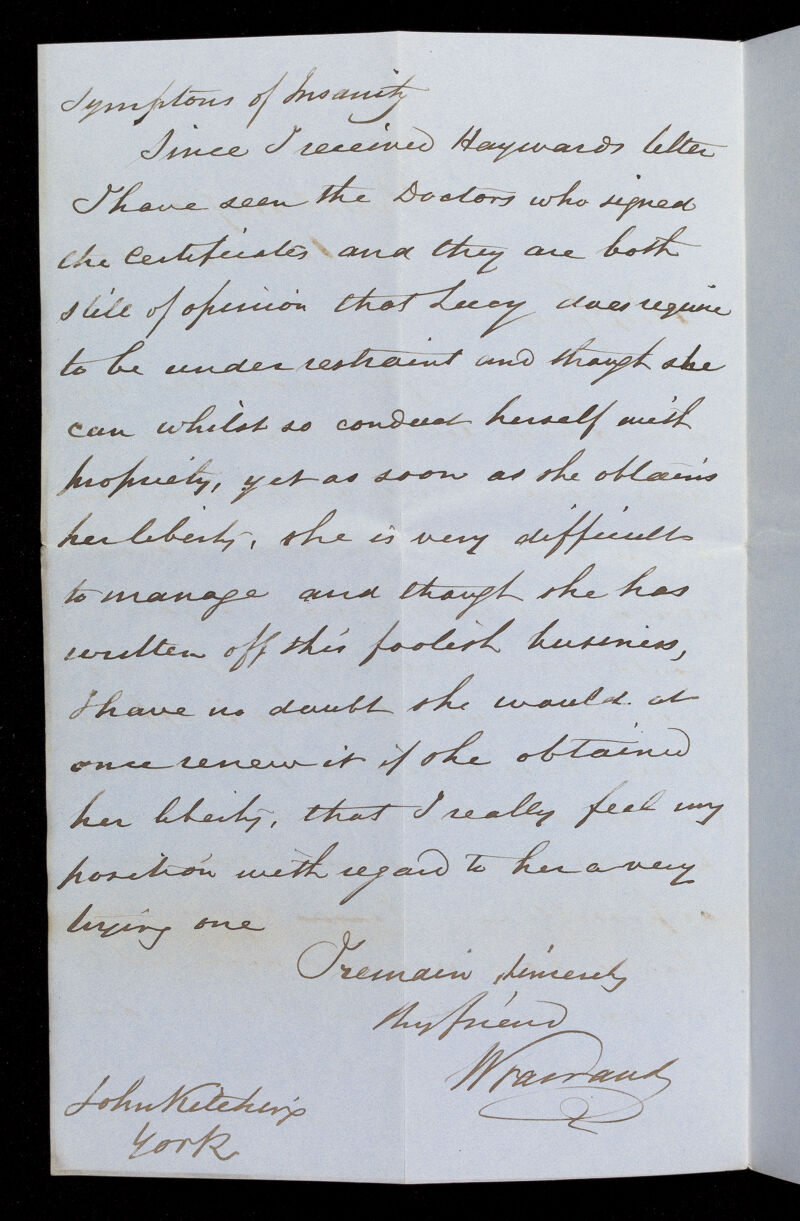 Symptoms of Insanity
Since I received Haywards letter
I have seen the Doctors who signed
the Certificates and they are both
still of opinion that Lucy does require
to be under restraint and though she
can whilst so conduct herself with
propriety, yet as soon as she obtains
her liberty, she is very difficult
to manage and though she has
written off this foolish business,
I have no doubt she would at
once renew it if she obtained
her liberty, that I really feel my
position with regard to her a very
trying one
I remain sincerely
thy friend
W Farrand
John Kitching
York